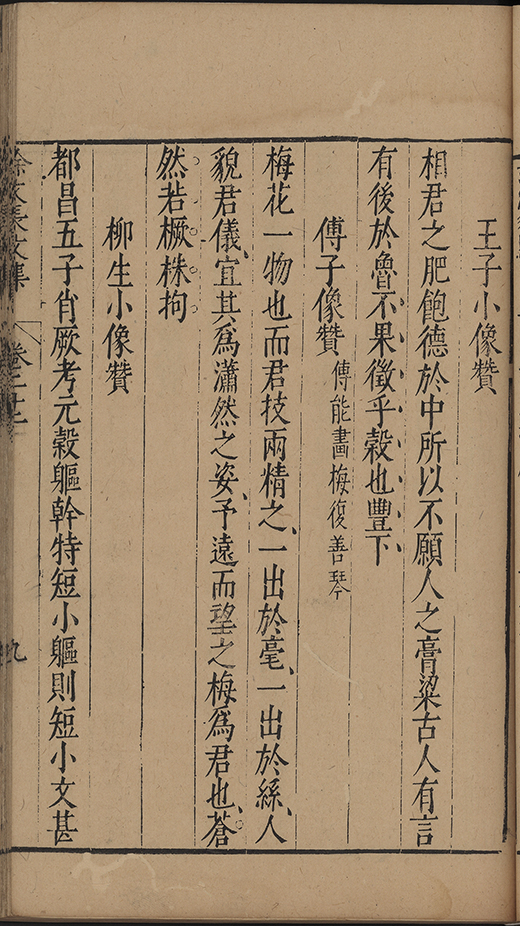 王子小像贊
相君之肥飽德於中所以不願人之膏粱古人有言
有後於魯不果徵乎穀也豐下
傅子像贊 傅能畫梅復善琴
梅花一物也而君技兩精之、一出於毫、一出於絲、人
貌君儀、宜其為瀟然之姿、予遠而望之梅為君也、蒼
然若橛株拘
柳生小像贊
都昌五子肖厥考元穀軀幹特短小軀則短小文甚
徐文長文集 卷二十二 九